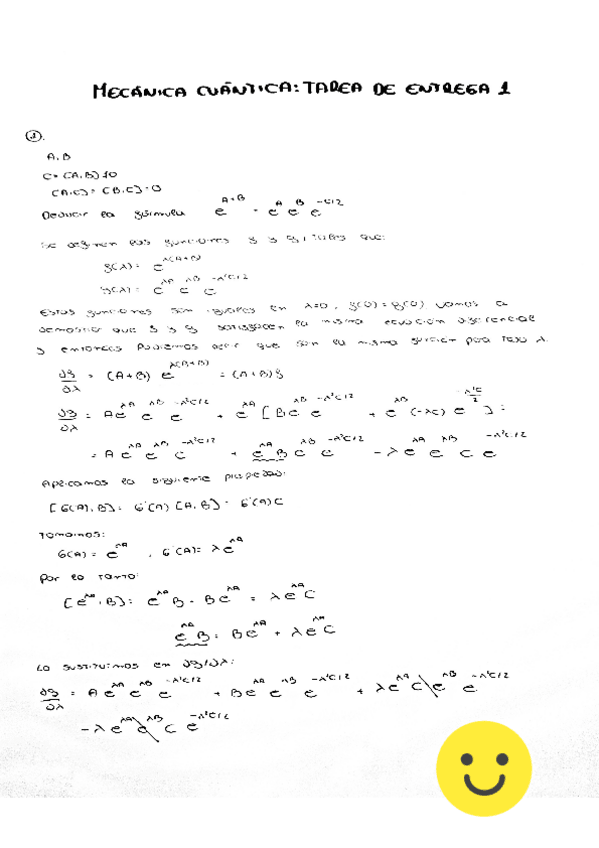 MECÁNICA CUÁNTICA: TAREA DE ENTREGA 1
①.
A, B
C = [A, B] ≠ 0
[A, C] = [B, C] = 0
Deducir la fórmula e^{A+B} = e^A e^B e^{-C/2}
Se definen las funciones f y g tales que:
f(λ) = e^{λ(A+B)}
g(λ) = e^{λA} e^{λB} e^{-λ²C/2}
Estas funciones son iguales en λ=0, f(0) = g(0) vamos a
demostrar que f y g satisfacen la misma ecuación diferencial
y entonces podremos decir que son la misma función para todo λ.
∂f/∂λ = (A+B) e^{λ(A+B)} = (A+B)f
∂g/∂λ = A e^{λA} e^{λB} e^{-λ²C/2} + e^{λA} [B e^{λB} e^{-λ²C/2} + e^{λB} (-λC) e^{-λ²C/2}] =
= A e^{λA} e^{λB} e^{-λ²C/2} + e^{λA} B e^{λB} e^{-λ²C/2} - λ e^{λA} e^{λB} C e^{-λ²C/2}
Aplicamos la siguiente propiedad:
[G(A), B] = G'(A) [A, B] = G'(A) C
Tomamos:
G(A) = e^{λA}, G'(A) = λ e^{λA}
Por lo tanto:
[e^{λA}, B] = e^{λA} B - B e^{λA} = λ e^{λA} C
e^{λA} B = B e^{λA} + λ e^{λA} C
Lo sustituimos en ∂g/∂λ:
∂g/∂λ = A e^{λA} e^{λB} e^{-λ²C/2} + B e^{λA} e^{λB} e^{-λ²C/2} + λ e^{λA} C e^{λB} e^{-λ²C/2}
- λ e^{λA} e^{λB} C e^{-λ²C/2}